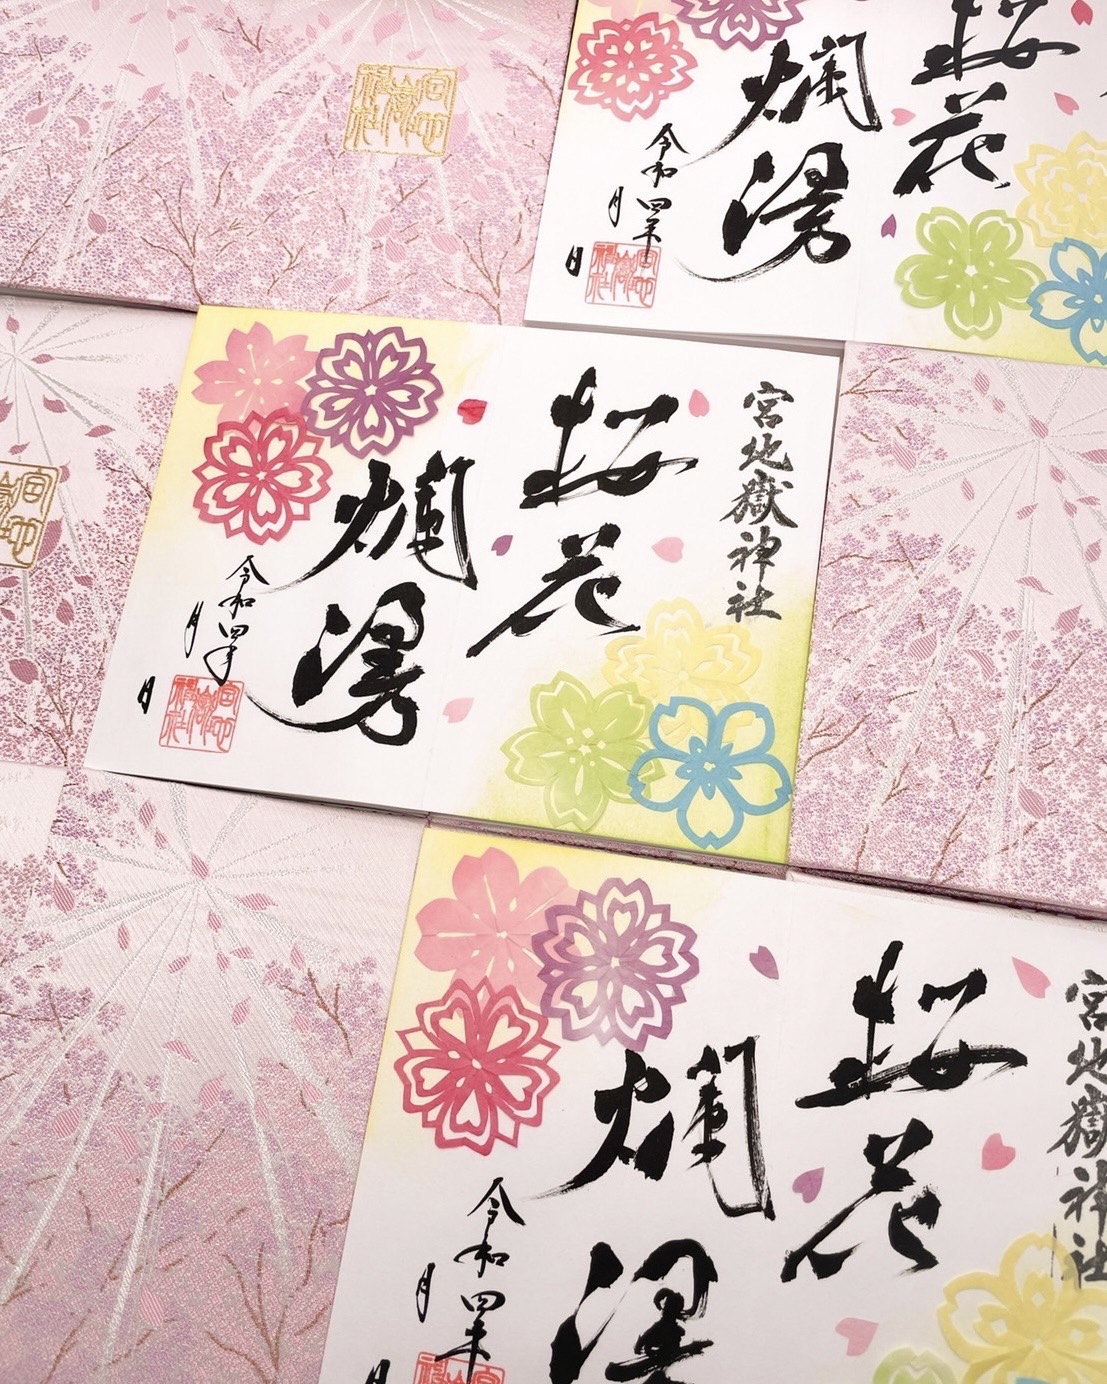 宮地嶽神社
桜花
爛漫
令和四年
月
日
宮地嶽神社
桜花
爛漫
令和四年
月
日
宮地嶽神社
宮地嶽神社
桜花
爛漫
令和四年
月
日
宮地嶽神社